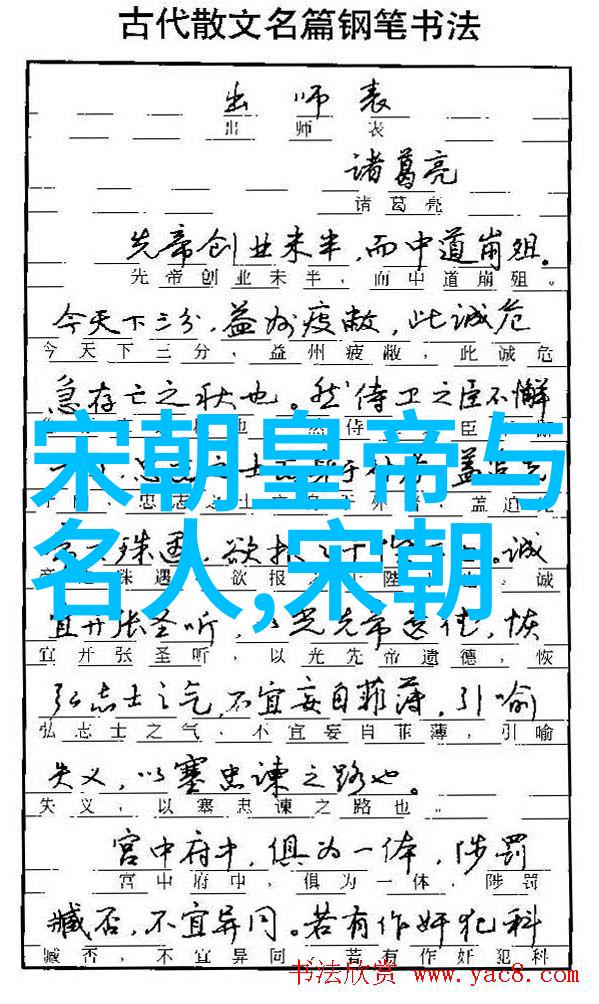 古代散文名篇钢笔书法
出师表
出师表
诸葛亮
诸葛亮
先帝创业未半，而中道崩殂。
先帝创业未半，而中道崩殂。
今天下三分，益州疲敝，此诚危
今天下三分，益州疲敝，此诚危
急存亡之秋也。然侍卫之臣不懈
宋朝皇帝与
名人,宋朝
忠志之士
盖追
殊遇，欲报
诚
殊遇，欲报
陛
诚
宜开张圣听，以光先帝遗德，恢
宜开张圣听，以光先帝遗德，恢
弘志士之气，不宜妄自菲薄，引喻
弘志士之气，不宜妄自菲薄，引喻
失义，以塞忠谏之路也。
失义，以塞忠谏之路也。
宫中府中，俱为一体，陟罚
宫中府中，俱为一体，陟罚
臧否，不宜异同。若有作奸犯科
臧否，不宜异同。若有作奸犯科
书法欣赏 www.yac8.com